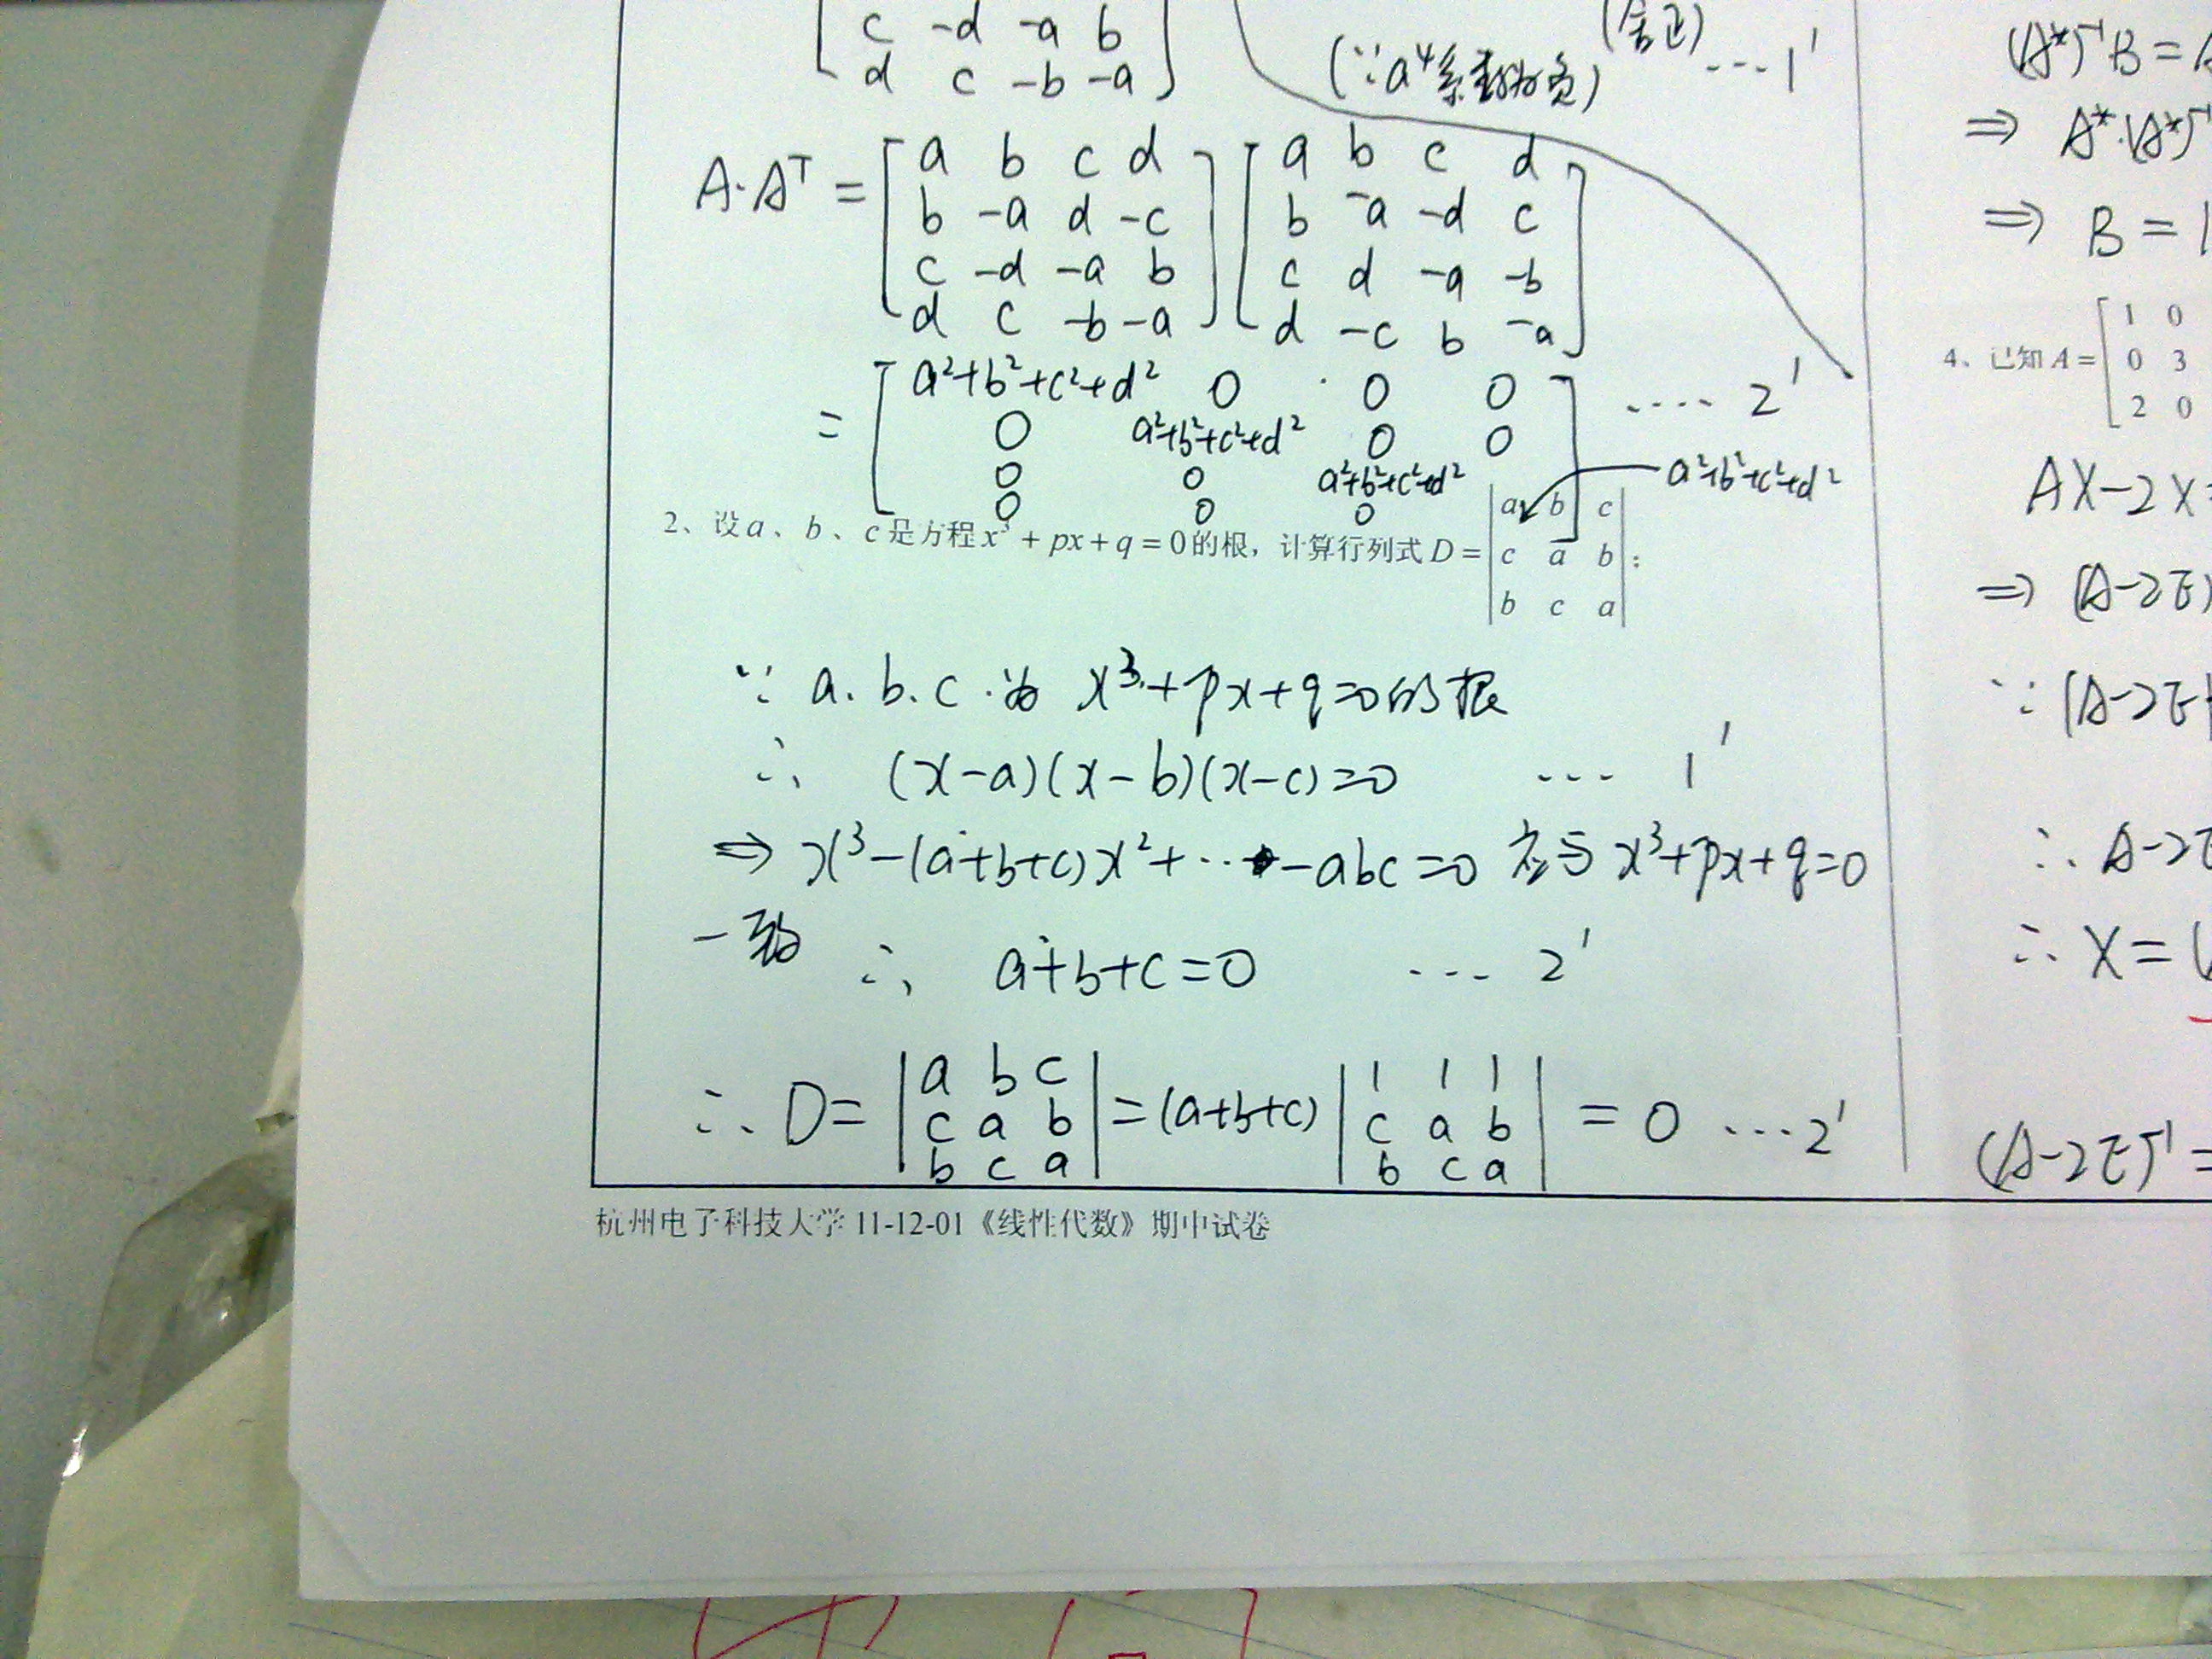 c -d -a b
d c -b -a
(舍正)
(∵a⁴系数为负) ...1'
A·Aᵀ = [a b c d] [a b c d]
b -a d -c b -a -d c
c -d -a b c d -a -b
d c -b -a d -c b -a
= [a²+b²+c²+d² 0 0 0] .... 2'
0 a²+b²+c²+d² 0 0
0 0 a²+b²+c²+d² a²+b²+c²+d²
0 0 0
2、设a、b、c是方程x³+px+q=0的根，计算行列式D=|a b c|
|c a b|；
|b c a|
∵ a.b.c.为 x³+px+q=0的根
∴ (x-a)(x-b)(x-c)=0 ... 1'
⇒ x³-(a+b+c)x²+...-abc=0 应与 x³+px+q=0
一致 ∴ a+b+c=0 ... 2'
∴ D= |a b c| =(a+b+c) |1 1 1| = 0 ...2'
c a b c a b
b c a b c a
杭州电子科技大学 11-12-01《线性代数》期中试卷
(A*)⁻¹B=
⇒ A*·(A*)⁻¹
⇒ B=
4、已知A= [1 0
0 3
2 0
AX-2X
⇒ (A-2E)
∵ (A-2E
∴ A-2E
∴ X=
(A-2E)⁻¹=